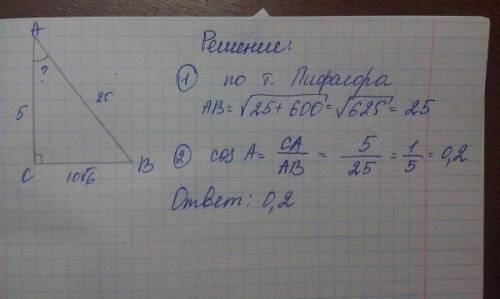 A
?
25
5
C
10√6
B
Решение:
① по т. Пифагора
AB = √(25 + 600) = √625 = 25
② cos A = CA/AB = 5/25 = 1/5 = 0,2
Ответ: 0,2